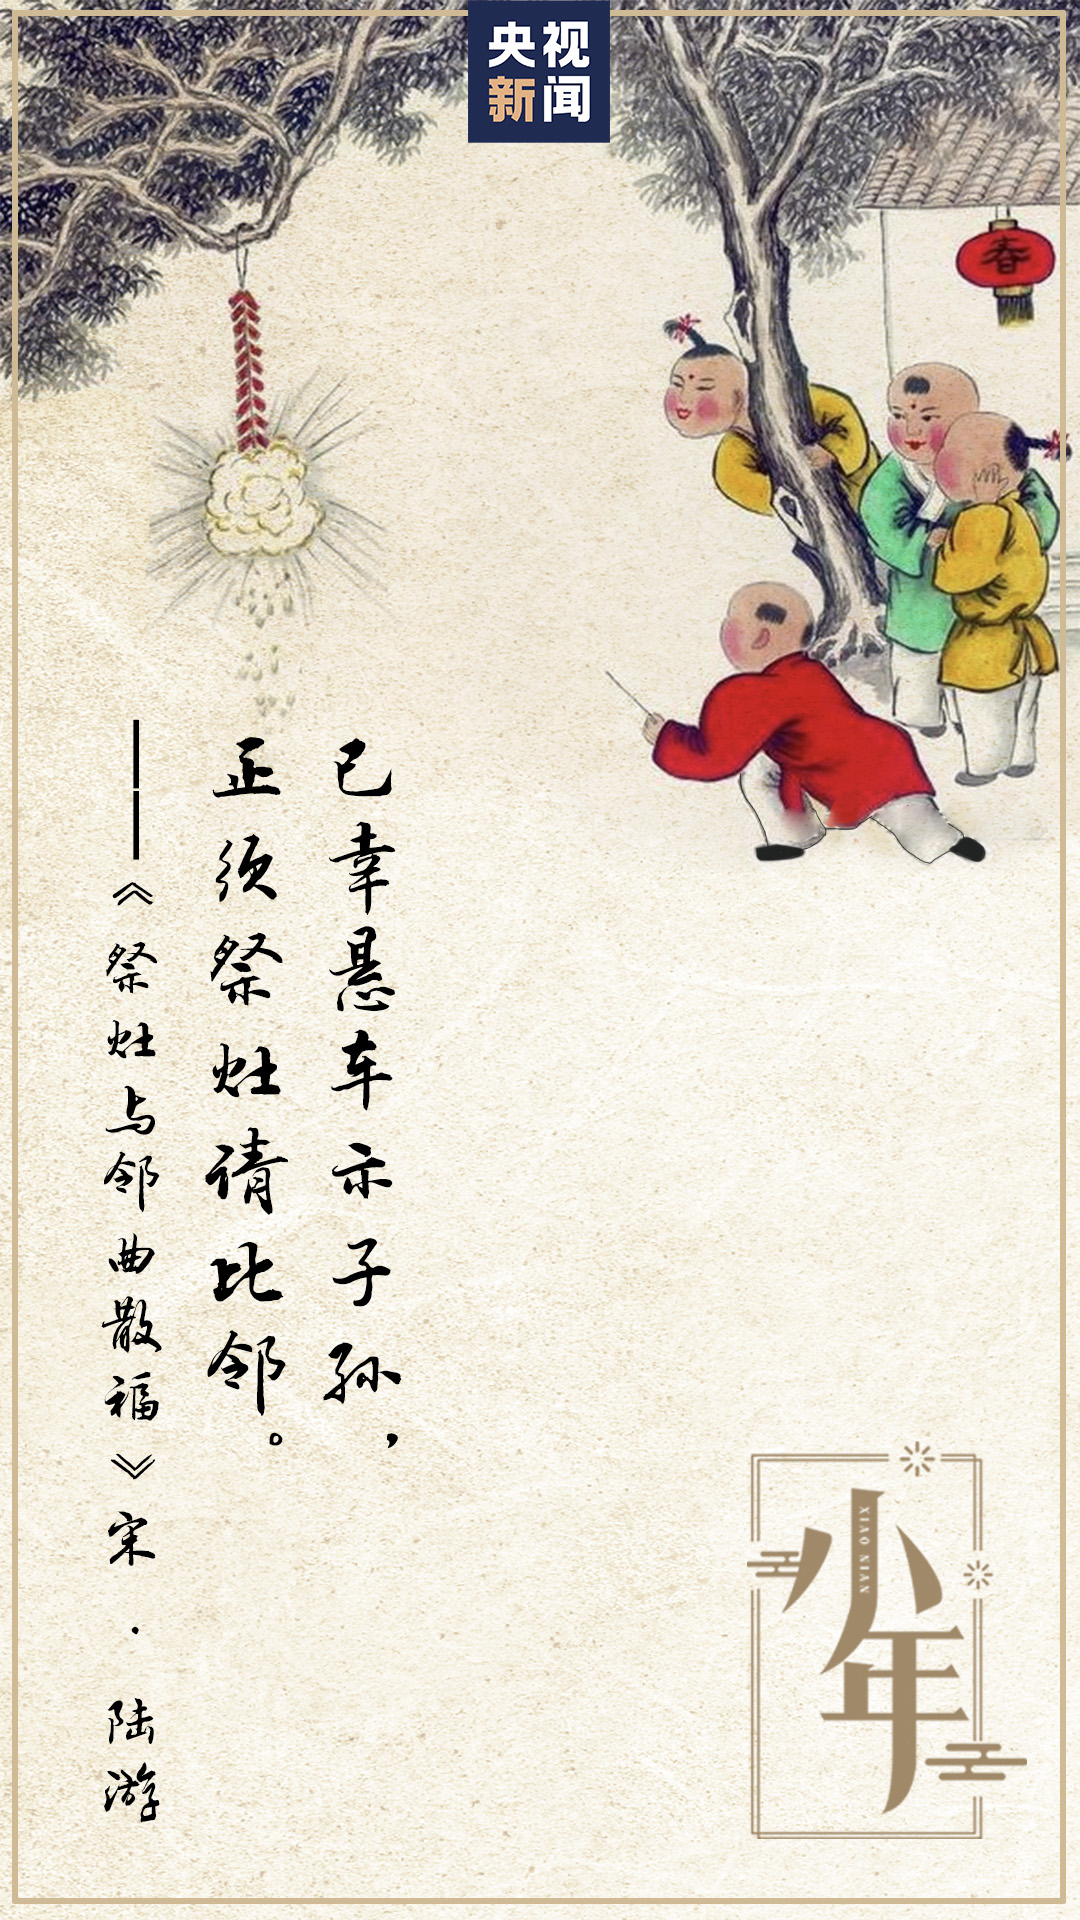 央视
新闻
春
已幸悬车示子孙，
正须祭灶请比邻。
——《祭灶与邻曲散福》宋·陆游
小年
XIAO NIAN